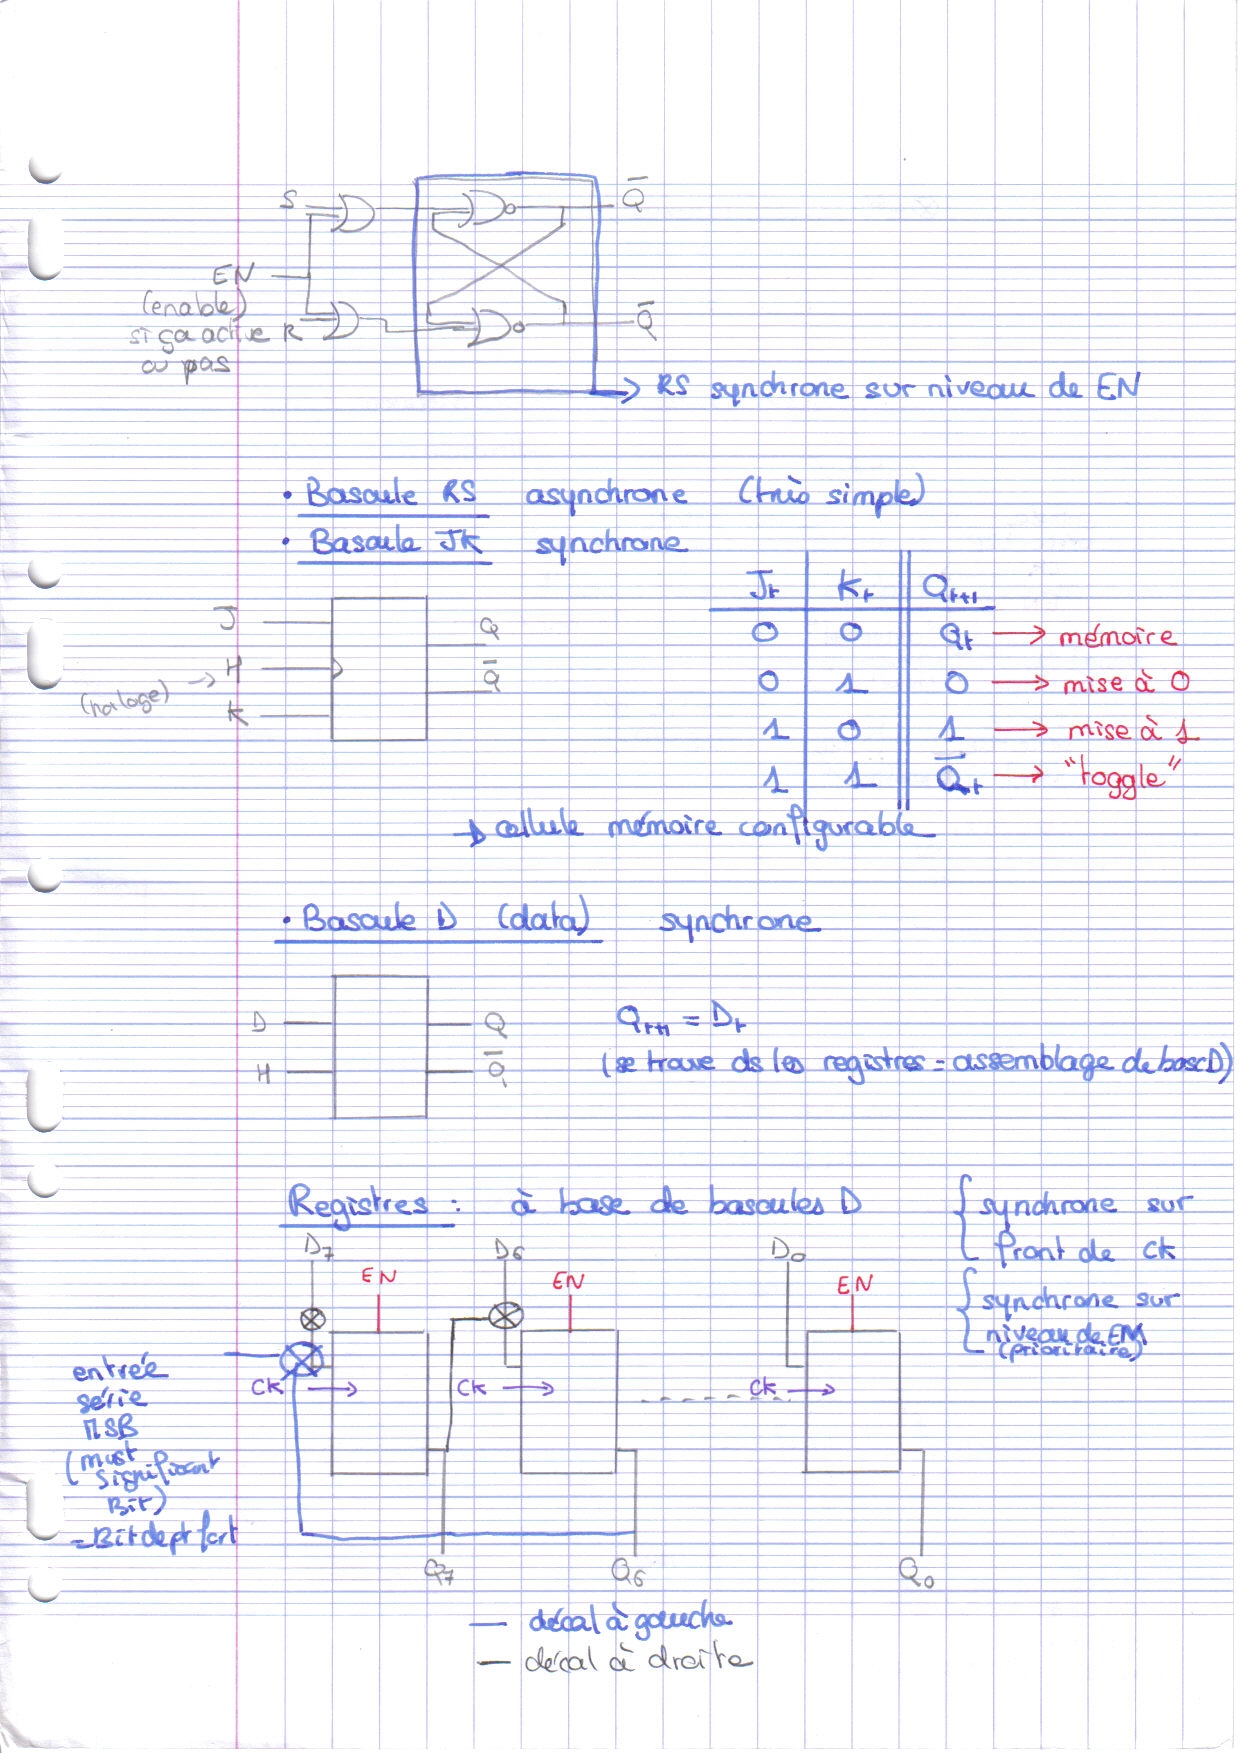 S
Q̅
EN
(enable)
si ça active R
ou pas
Q̅
→ RS synchrone sur niveau de EN
• Bascule RS asynchrone (très simple)
• Bascule JK synchrone
Jt Kt Qt+1
0 0 Qt → mémoire
0 1 0 → mise à 0
1 0 1 → mise à 1
1 1 Q̅t → "toggle"
J
Q
(horloge) → H
Q̅
K
→ cellule mémoire configurable
• Bascule D (data) synchrone
D Q
H Q̅
Qt+1 = Dt
(se trouve ds les registres = assemblage de bascD)
Registres : à base de bascules D
{ synchrone sur
front de CK
{ synchrone sur
niveau de EN
(prioritaire)
D7 D6 D0
EN EN EN
CK → CK → CK →
entrée
série
MSB
(must
significant
Bit)
= Bit de pt fort
Q7 Q6 Q0
— décal à gauche
— décal à droite